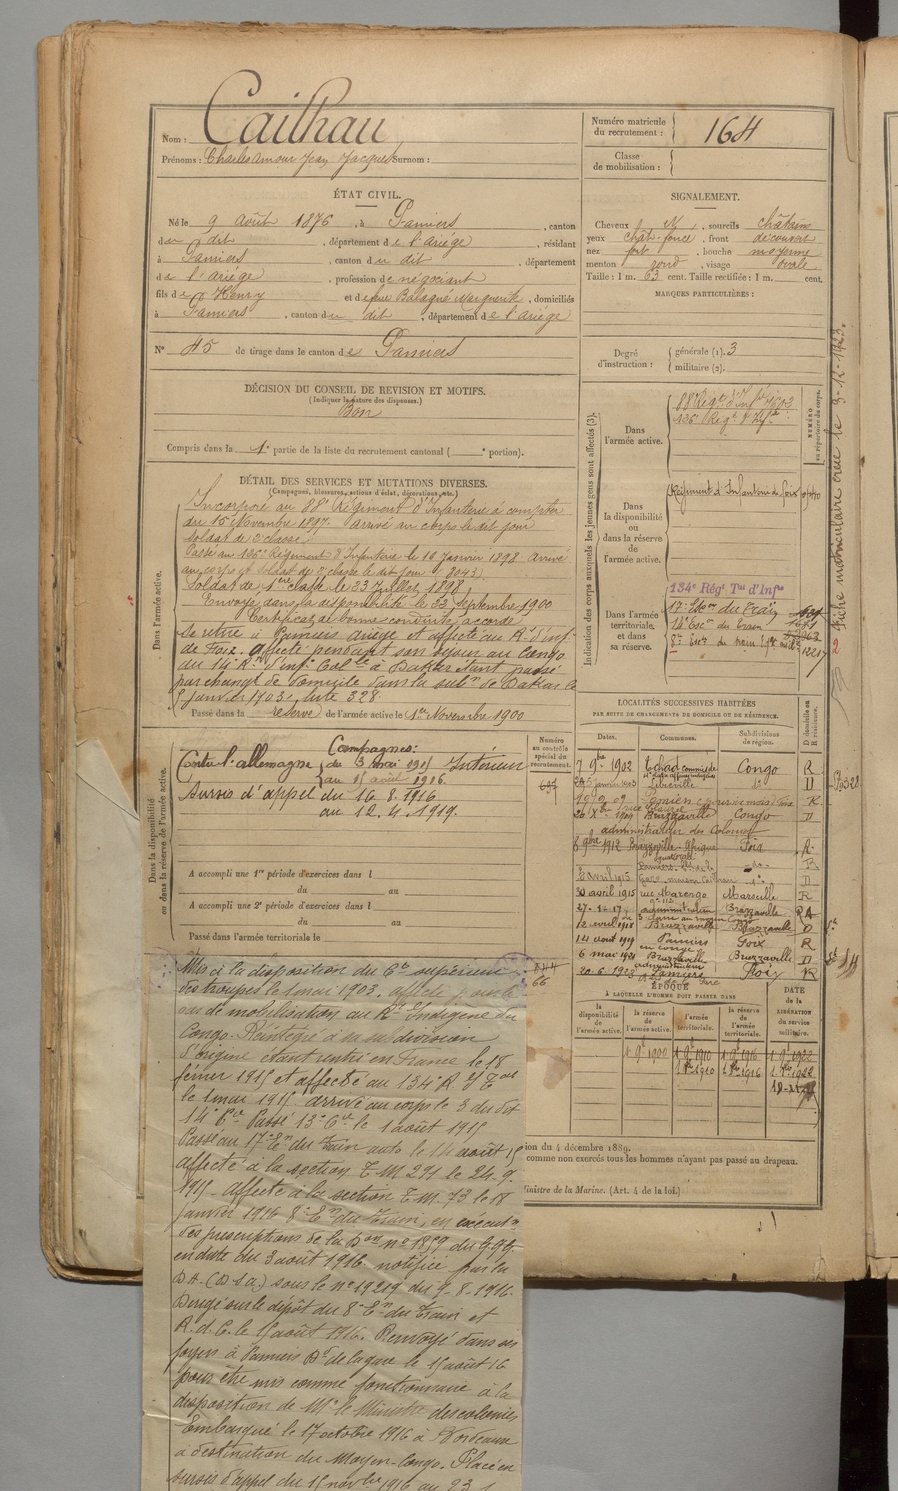 Nom : Cailhau
Prénoms : Charles Amour Jean Jacques Surnom :
Numéro matricule du recrutement : 164
Classe de mobilisation :
ÉTAT CIVIL.
Né le 9 Août 1876, à Pamiers, canton
du dit, département de l'Ariège, résidant
à Pamiers, canton du dit, département
de l'Ariège, profession de négociant
fils de Henry et de feue Balagué Marguerite, domiciliés
à Pamiers, canton du dit, département de l'Ariège
N° 45 de tirage dans le canton de Pamiers
SIGNALEMENT.
Cheveux N, sourcils châtain
yeux chât. foncé, front découvert
nez fort, bouche moyenne
menton rond, visage ovale
Taille : 1 m. 63 cent. Taille rectifiée : 1 m. cent.
MARQUES PARTICULIÈRES :
Degré d'instruction : générale (1). 3
militaire (2).
DÉCISION DU CONSEIL DE REVISION ET MOTIFS.
(Indiquer la nature des dispenses.)
Bon
Compris dans la 1e partie de la liste du recrutement cantonal ( e portion).
DÉTAIL DES SERVICES ET MUTATIONS DIVERSES.
(Campagnes, blessures, actions d'éclat, décorations, etc.)
Dans l'armée active.
Incorporé au 88e Régiment d'Infanterie à compter
du 15 Novembre 1897. arrivé au corps le dit jour
soldat de 2e classe.
Passé au 136e Régiment d'Infanterie le 10 Janvier 1898 arrivé
au corps et soldat de 2e classe le dit jour
Soldat de 1ère classe le 23 Juillet 1898
Envoyé dans la disponibilité le 22 Septembre 1900
Certificat de bonne conduite accordé
Se retire à Pamiers ariège et affecté au R. d'Inf
de Foix. affecté pendant son séjour au Congo
au 14e R. d'Inf Col le à Dakar étant passé
par changt de domicile dans la subon de Dakar le
5 janvier 1903, liste 328
Passé dans la réserve de l'armée active le 1er Novembre 1900
Indication des corps auxquels les jeunes gens sont affectés (3).
NUMÉRO au répertoire du corps.
Dans l'armée active.
88e Régt d'Infie 7602
136e Régt d'Infie
Dans la disponibilité ou dans la réserve de l'armée active.
Régiment d'Infanterie de Foix
Dans l'armée territoriale et dans sa réserve.
134e Régt Tal d'Infie
17e Eson du Train
14e Esc. du train
8e Esc. du train
Fiche matriculaire créée le 3-12-1923.
Dans la disponibilité ou dans la réserve de l'armée active.
Campagnes :
Contre l'allemagne du 3 mai 1915 Intérieur
au 15 août 1916.
Sursis d'appel du 16.8.1916
au 12.4.1919.
Numéro au contrôle spécial du recrutement.
697
A accompli une 1re période d'exercices dans l
du au
A accompli une 2e période d'exercices dans l
du au
Passé dans l'armée territoriale le
LOCALITÉS SUCCESSIVES HABITÉES
PAR SUITE DE CHANGEMENTS DE DOMICILE OU DE RÉSIDENCE.
Dates. Communes. Subdivisions de région. D domicile ou R résidence.
7 9bre 1902 Tchad commis de Congo R
Libreville do D
19 9 09 Pamiers Foix R
26 Xbre 1909 Brazzaville Congo D
administrateur des Colonies
1912 Brazzaville Afrique Foix R
équatoriale
2 avril 1915 D
30 avril 1915 rue Marengo Marseille R
27-12-17 administration Brazzaville R
12 avril 1918 Brazzaville Brazzaville D
14 août 1919 Pamiers Foix R
6 mai 1921 Brazzaville Brazzaville D
20.6.1923 Pamiers Foix R
ÉPOQUE
À LAQUELLE L'HOMME DOIT PASSER DANS
DATE de la LIBÉRATION du service militaire.
la disponibilité de l'armée active.
la réserve de l'armée active.
l'armée territoriale.
la réserve de l'armée territoriale.
1 9e 1900 1 9e 1910 1 9e 1916 1 9e 1922
1 8bre 1910 1 8bre 1916 1 8bre 1922
ion du 4 décembre 1889.
comme non exercés tous les hommes n'ayant pas passé au drapeau.
Ministre de la Marine. (Art. 4 de la loi.)
Mis à la disposition du Ct supérieur
des troupes le 1 mai 1903. affecté pour le
cas de mobilisation au Rt Indigène du
Congo. Réintégré à sa subdivision
d'origine étant rentré en France le 18
février 1915 et affecté au 134e R Tal
le 1 mai 1915 arrivé au corps le 3 du dit
14e Cie Passé 13e Cie le 1 août 1915
Passé au 17e En du train auto le 14 août 15
affecté à la section T M 291 le 24.9.
1915. affecté à la section T.M. 73 le 18
janvier 1916 8e En du train, en exécuton
des prescriptions de la Don n° 1859 du G.Q.G.
en date du 3 août 1916 notifié par la
D A. (D S a) sous le n° 19219 du 9-8-1916.
Dirigé sur le dépôt du 8e En du train et
R. d. C. le 15 août 1916. Renvoyé dans ses
foyers à Pamiers Bd de la gare le 15 août 16
pour être mis comme fonctionnaire à la
disposition de Mr le Ministre des colonies
Embarqué le 17 octobre 1916 à Bordeaux
à destination du Moyen-Congo. Placé en
sursis d'appel du 15 novbre 1916 au